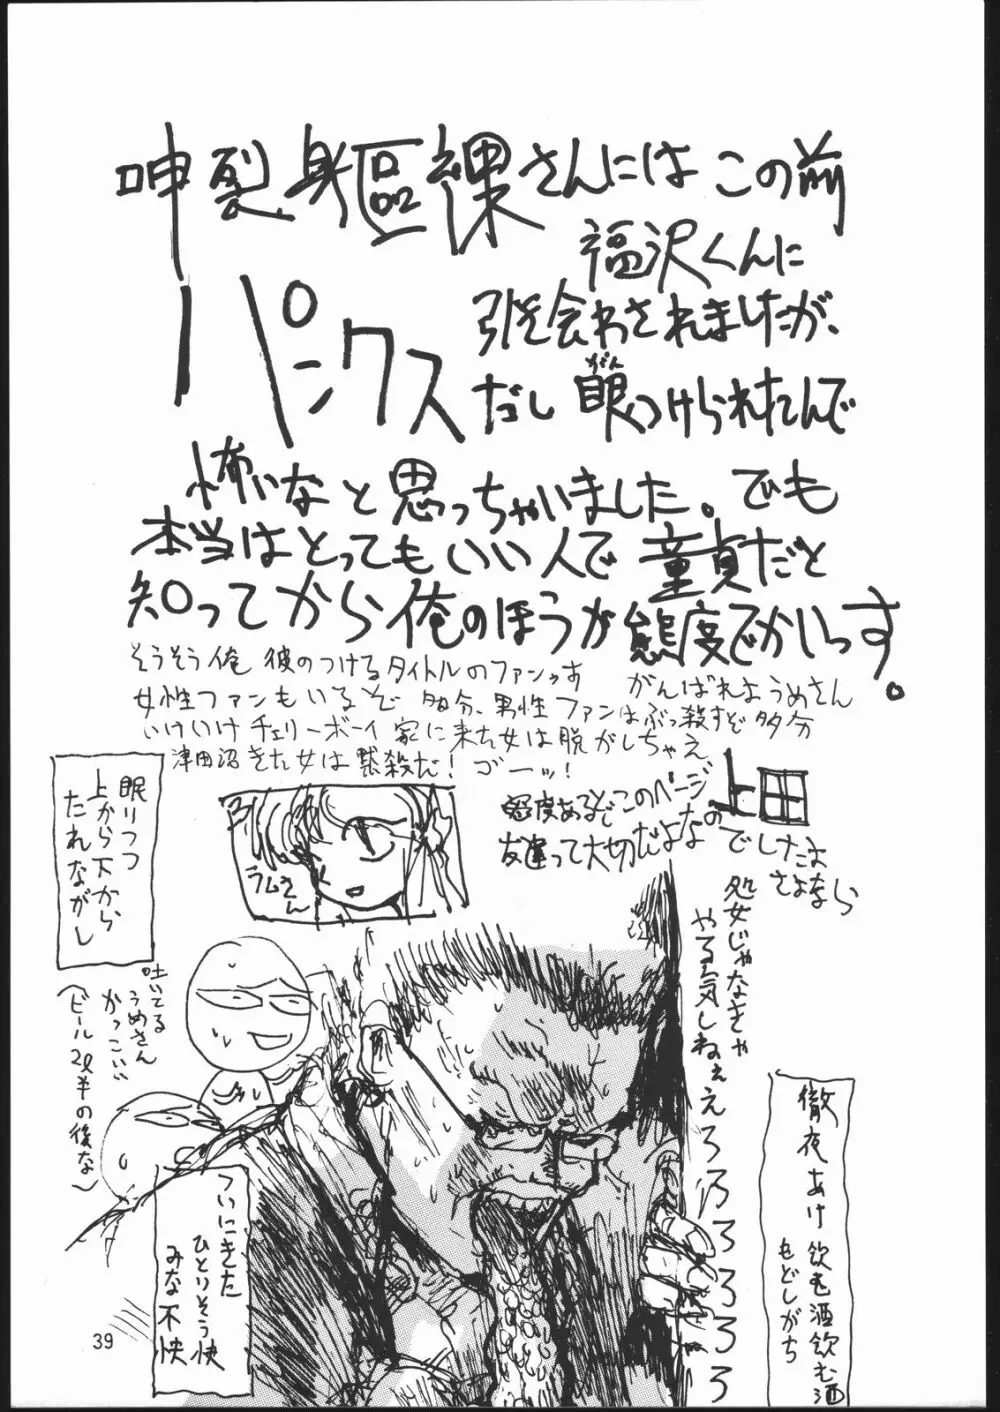 呻裂身區裸さんには この前
福沢くんに
引き会わされましたが、
パンクス
だし 眼つけられたんで
がん
怖いなと思っちゃいました。でも
本当はとってもいい人で童貞だと
知ってから俺のほうが態度でかいっす。
そうそう俺 彼のつけるタイトルのファンっす
女性ファンもいるぞ 多分、男性ファンはぶっ殺すぞ多分
がんばれようめさん
いけいけチェリーボーイ 家に来た女は脱がしちゃえ
津田沼きた女は黙殺だ！ゴーッ！
態度あるぞこのページ
友達って大切だよなの
上田
でしたさよなら
眠りつつ
上から下から
たれながし
ラムさん
吐いてる
うめさん
かっこいい
(ビール2ℓ半の後な)
処女じゃなきゃ
やる気しねぇえろろろろろろろ
徹夜あけ飲む酒飲む酒
もどしがち
ついにきた
ひとりそう快
みな不快
39